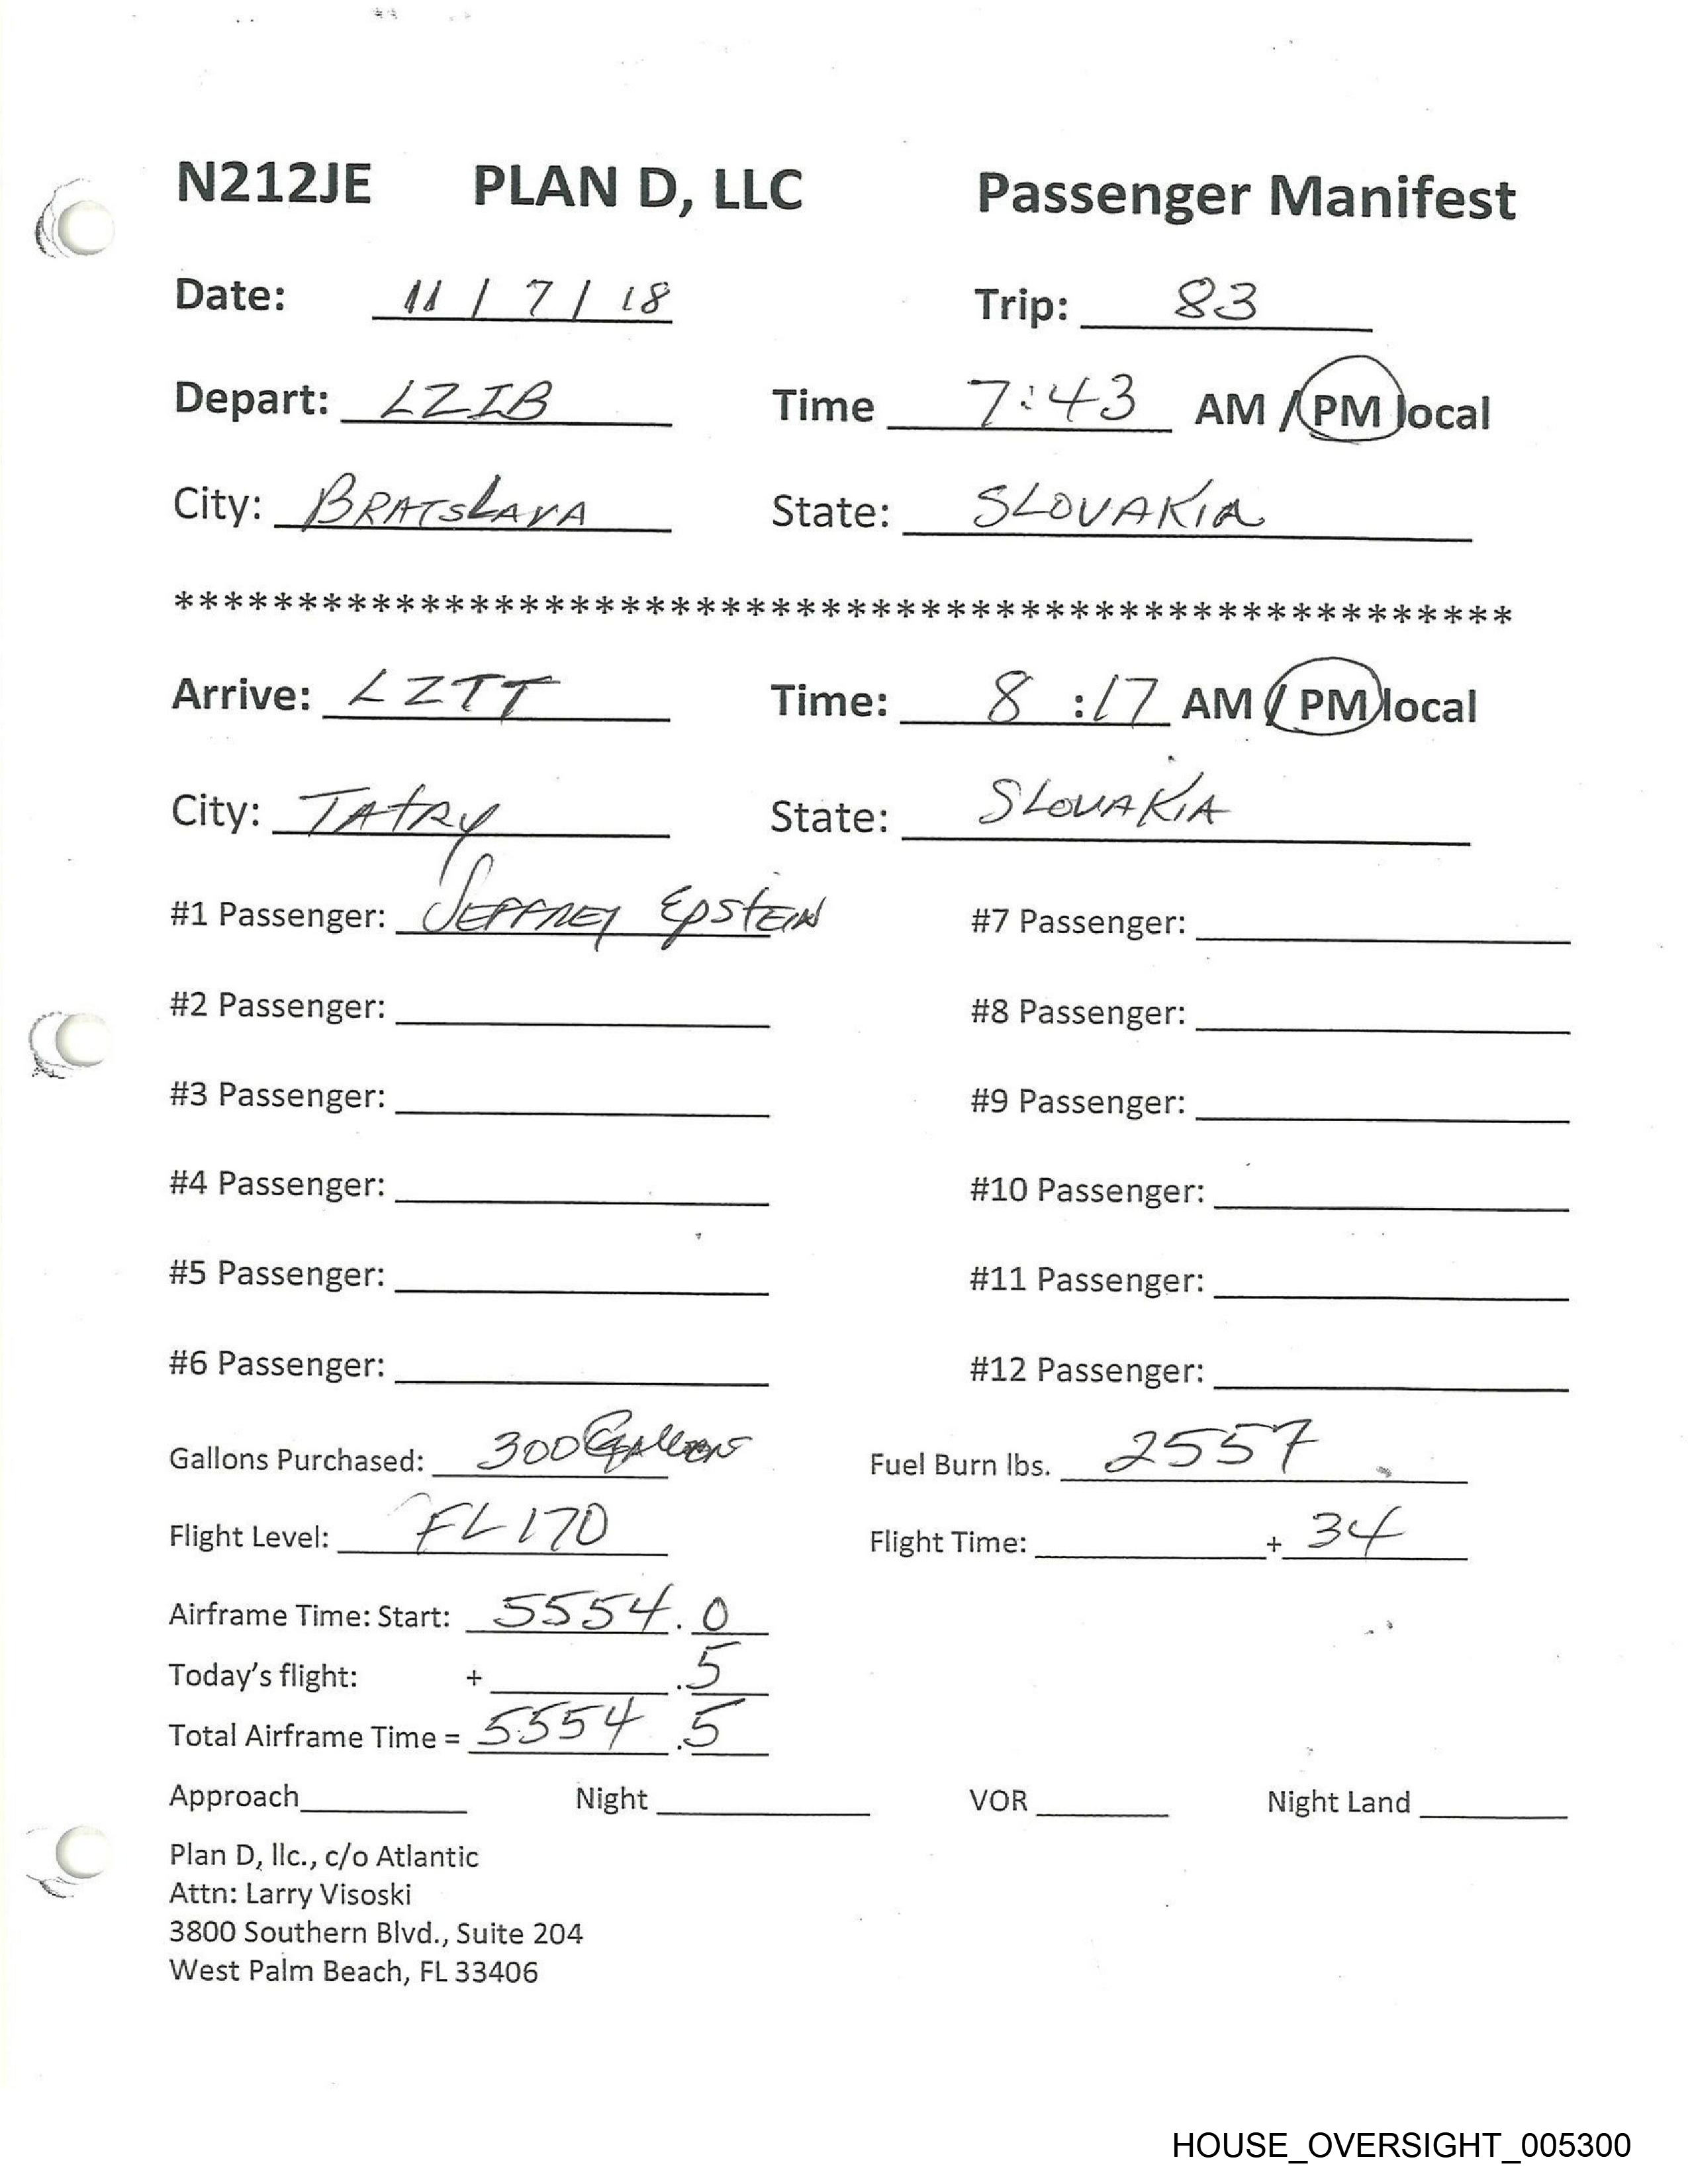 N212JE PLAN D, LLC Passenger Manifest
Date: 11 / 7 / 18 Trip: 83
Depart: LZIB Time 7:43 AM / PM local
City: BRATSLAVA State: SLOVAKIA
******************************************************
Arrive: LZTT Time: 8 :17 AM / PM local
City: TATRY State: SLOVAKIA
#1 Passenger: JEFFREY EpstEIN #7 Passenger:
#2 Passenger: #8 Passenger:
#3 Passenger: #9 Passenger:
#4 Passenger: #10 Passenger:
#5 Passenger: #11 Passenger:
#6 Passenger: #12 Passenger:
Gallons Purchased: 300 Gallons Fuel Burn lbs. 2557
Flight Level: FL 170 Flight Time: + 34
Airframe Time: Start: 5554.0
Today's flight: + .5
Total Airframe Time = 5554.5
Approach Night VOR Night Land
Plan D, llc., c/o Atlantic
Attn: Larry Visoski
3800 Southern Blvd., Suite 204
West Palm Beach, FL 33406
HOUSE_OVERSIGHT_005300